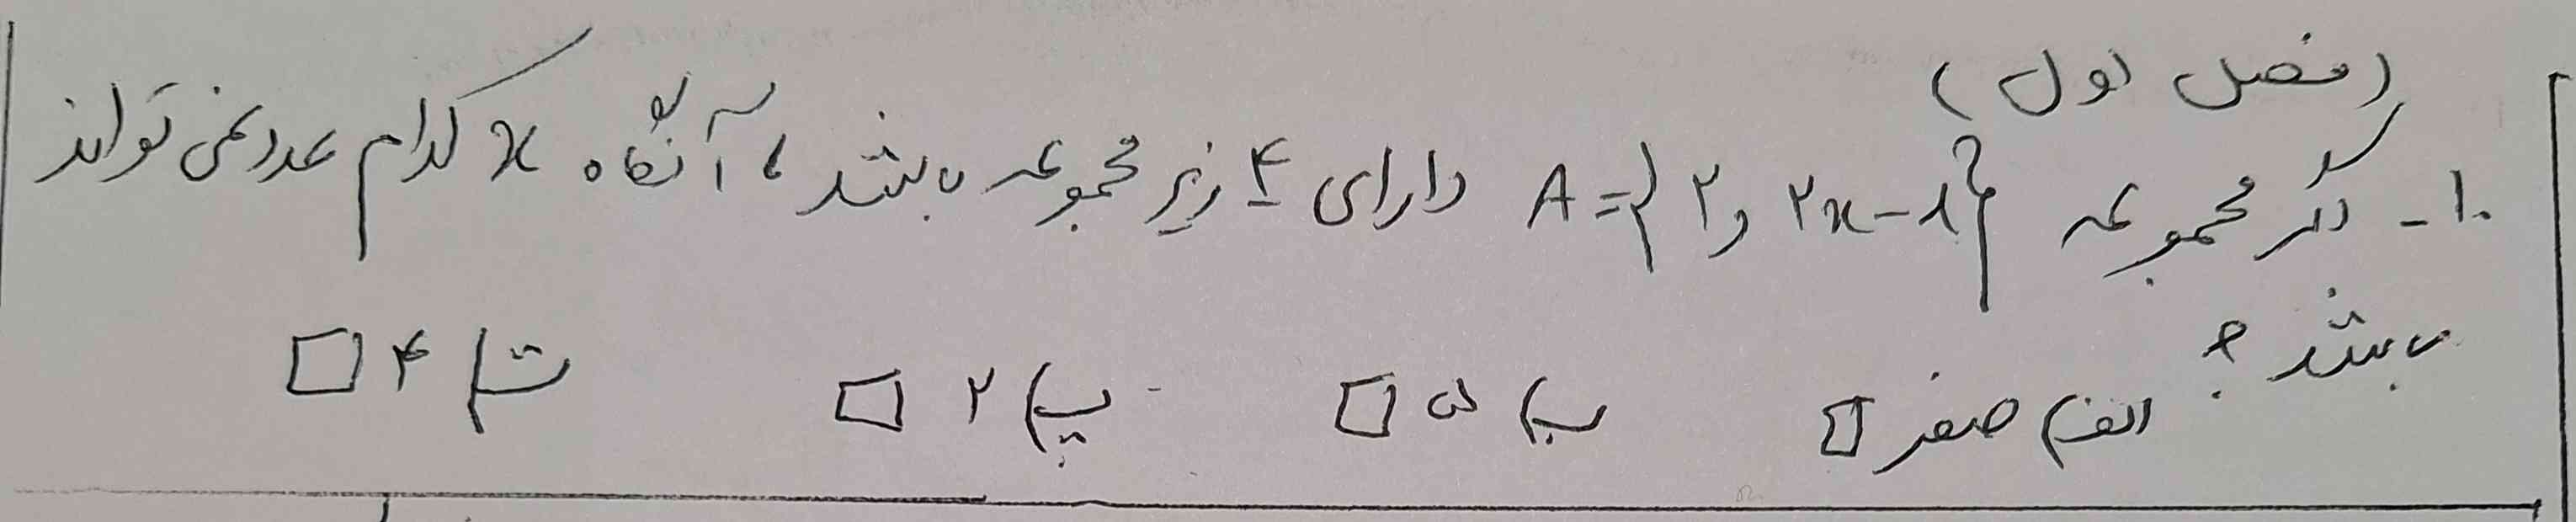 (فصل اول)
۱۰- اگر مجموعه A = {۲ و ۲x-۸} دارای ۴ زیر مجموعه باشد، آنگاه x کدام عدد نمی تواند
باشد؟
الف) صفر □ ب) ۵ □ پ) ۲ □ ت) ۴ □